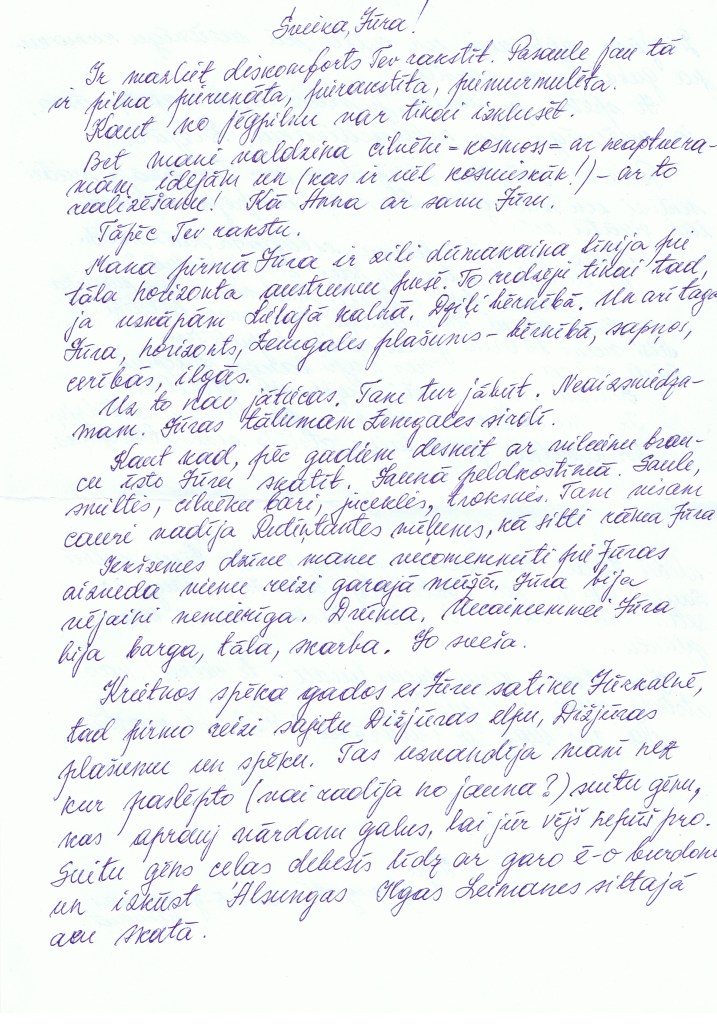 Sveika, Jūra!
Ir mazliet diskomforts Tev rakstīt. Pasaule jau tā
ir pilna pierunāta, pierakstīta, piemurmulēta.
Kaut ko jēgpilnu var tikai izklusēt.
Bet mani valdzina cilvēki = kosmoss = ar neaptvera-
mām idejām un (kas ir vēl kosmiskāk!) – ar to
realizēšanu! Kā Anna ar savu Jūru.
Tāpēc Tev rakstu.
Mana pirmā Jūra ir zili dūmakaina līnija pie
tāla horizonta austrumu pusē. To redzēju tikai tad,
ja uzkāpām Lielajā kalnā. Dziļi bērnībā. Un arī tagad
Jūra, horizonts, Zemgales plašums – bērnībā, sapņos,
cerībās, ilgās.
Uz to nav jātiecas. Tam tur jābūt. Neaizsniedza-
mam. Jūras tālumam Zemgales sirdī.
Kaut kad, pēc gadiem desmit ar vilcienu brau-
cu īsto Jūru skatīt. Jaunā peldkostīmā. Saule,
smiltis, cilvēku bari, jūceklis, troksnis. Tam visam
cauri vadīja tantes mūķenes, kā silti rāma Jūra
Iekšzemes dzīve manu vecomemmīti pie Jūras
aizveda vienu reizi garajā mūžā. Jūra bija
vējaini nemierīga. Drūma. Vecaimemmei Jūra
bija barga, tāla, skarba. Jo sveša.
Krietnos spēka gados es Jūru satiku Jūrkalnē,
tad pirmo reizi sajutu Dižjūras elpu, Dižjūras
plašumu un spēku. Tas uzvandīja manī nez
kur paslēpto (vai radīja no jauna?) suitu gēnu,
kas aprauj vārdam galus, lai jūr vējš nepūš pro.
Suitu gēns ceļas debesīs līdz ar garo ē-o burdonu
un izkūst Alsungas Ilgas Leimanes siltajā
acu skatā.